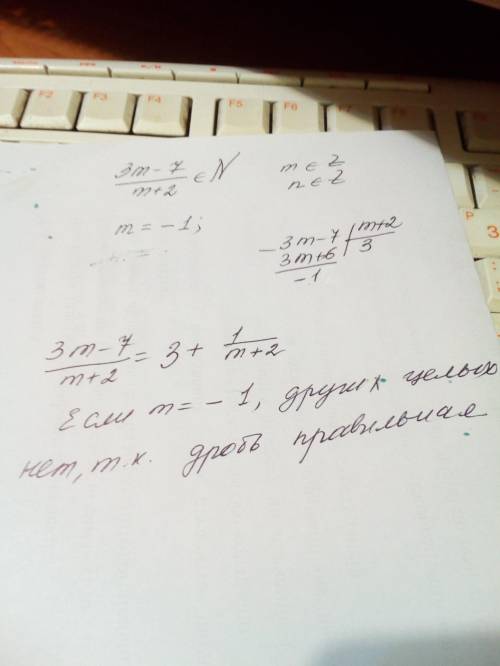 F2 F3 F4 F5 F6 F7
(3m-7)/(m+2) ∈ N   m ∈ Z
n ∈ Z
m = -1;
- 3m-7 | m+2
3m+6 | 3
-1
(3m-7)/(m+2) = 3 + 1/(m+2)
Если m = -1, других целых
нет, т.к. дробь правильная
P
3